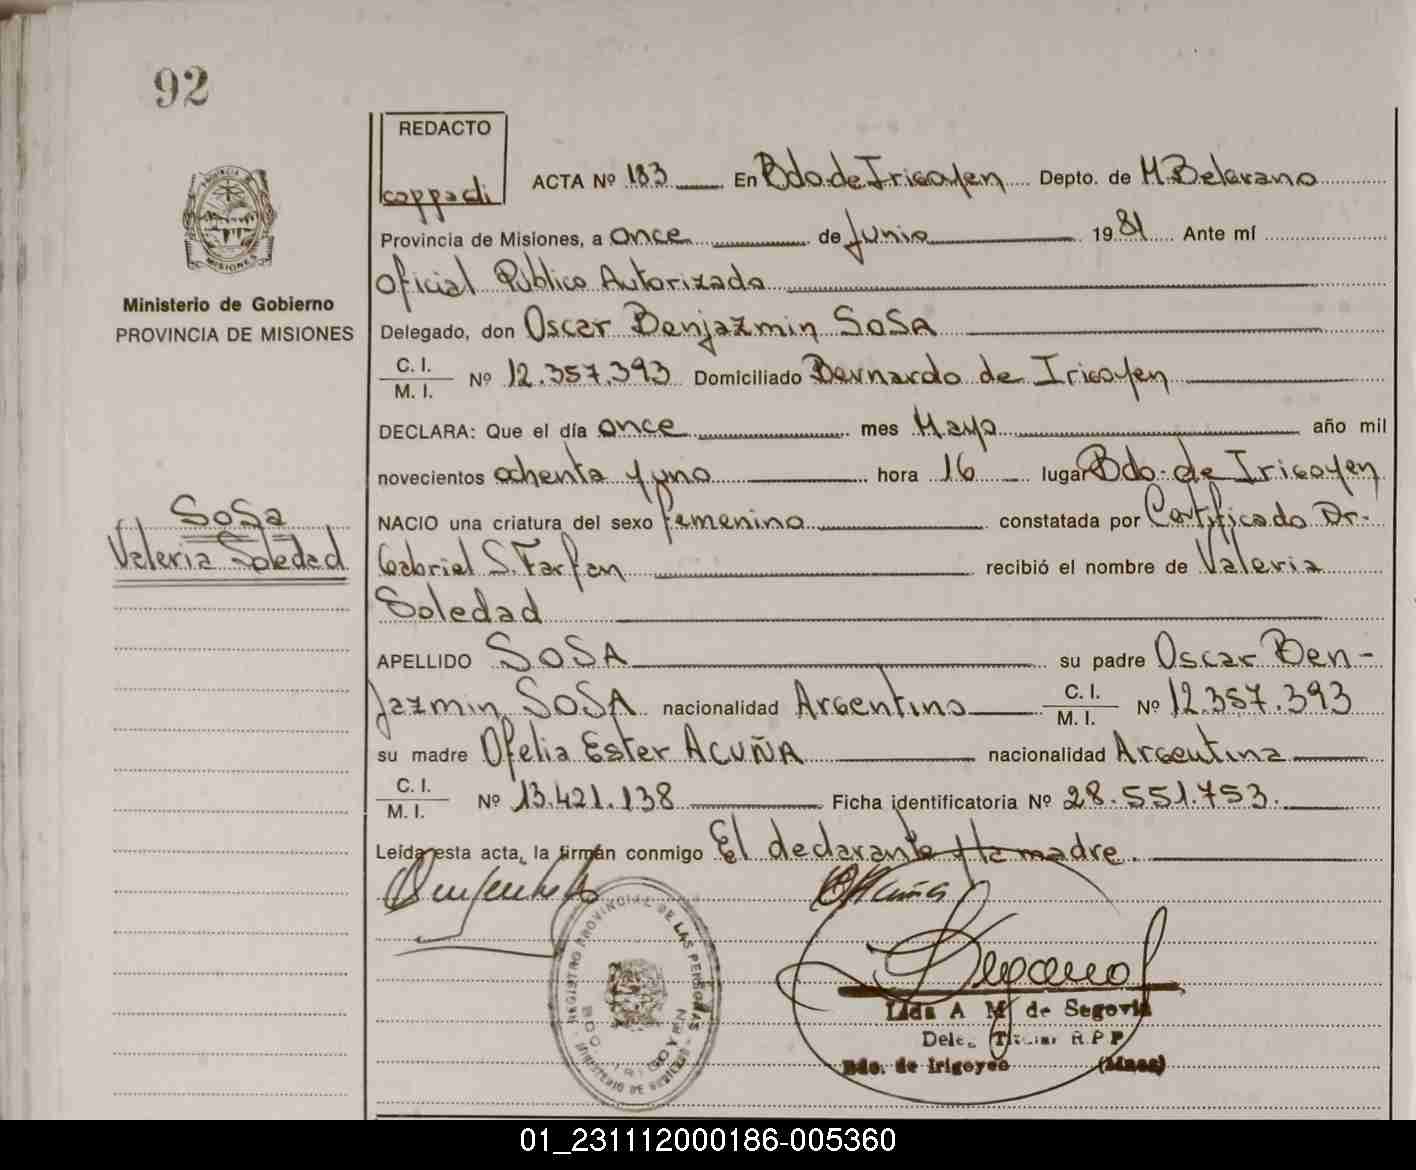 92
REDACTO
cappadi
ACTA Nº 183 En Bdo. de Irigoyen Depto. de M. Belgrano
Provincia de Misiones, a once de Junio 1981 Ante mí
Oficial Público Autorizado
Delegado, don Oscar Benjazmin SOSA
C. I.
M. I.
Nº 12.357.393 Domiciliado Bernardo de Irigoyen
DECLARA: Que el día once mes Mayo año mil
novecientos ochenta y uno hora 16 lugar Bdo. de Irigoyen
NACIO una criatura del sexo femenino constatada por Certificado Dr.
Gabriel S. Farfan recibió el nombre de Valeria
Soledad
APELLIDO SOSA su padre Oscar Ben-
jazmin SOSA nacionalidad Argentino C. I. M. I. Nº 12.357.393
su madre Ofelia Ester ACUÑA nacionalidad Argentina
C. I.
M. I.
Nº 13.421.138 Ficha identificatoria Nº 28.551.753.
Leída esta acta, la firmán conmigo El declarante y la madre.
PROVINCIA DE
MISIONES
Ministerio de Gobierno
PROVINCIA DE MISIONES
SOSA
Valeria Soledad
REGISTRO PROVINCIAL DE LAS PERSONAS
BDO. IRIGOYEN
MINISTERIO DE
A M de Segovia
R.P.P
Bdo. de Irigoyen (Mnes)
01_231112000186-005360